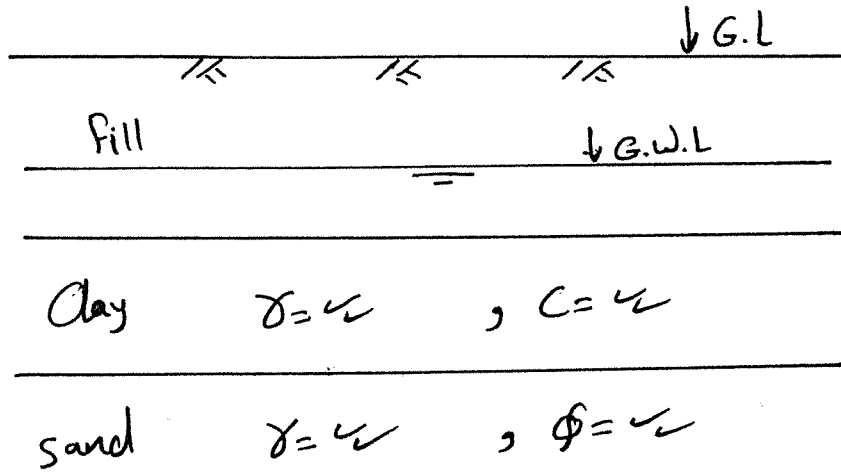 ↓ G.L
Fill ↓ G.W.L
Clay γ= ✓✓ , C= ✓✓
sand γ= ✓✓ , φ= ✓✓